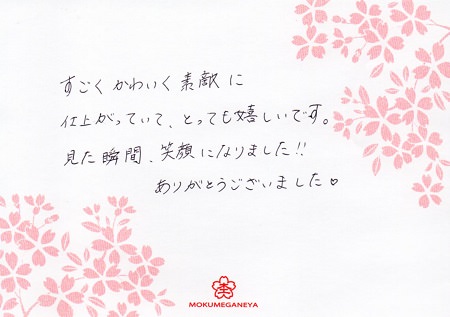 すごく かわいく 素敵に
仕上がっていて、とっても嬉しいです。
見た瞬間、笑顔になりました!!
ありがとうございました♡
MOKUMEGANEYA